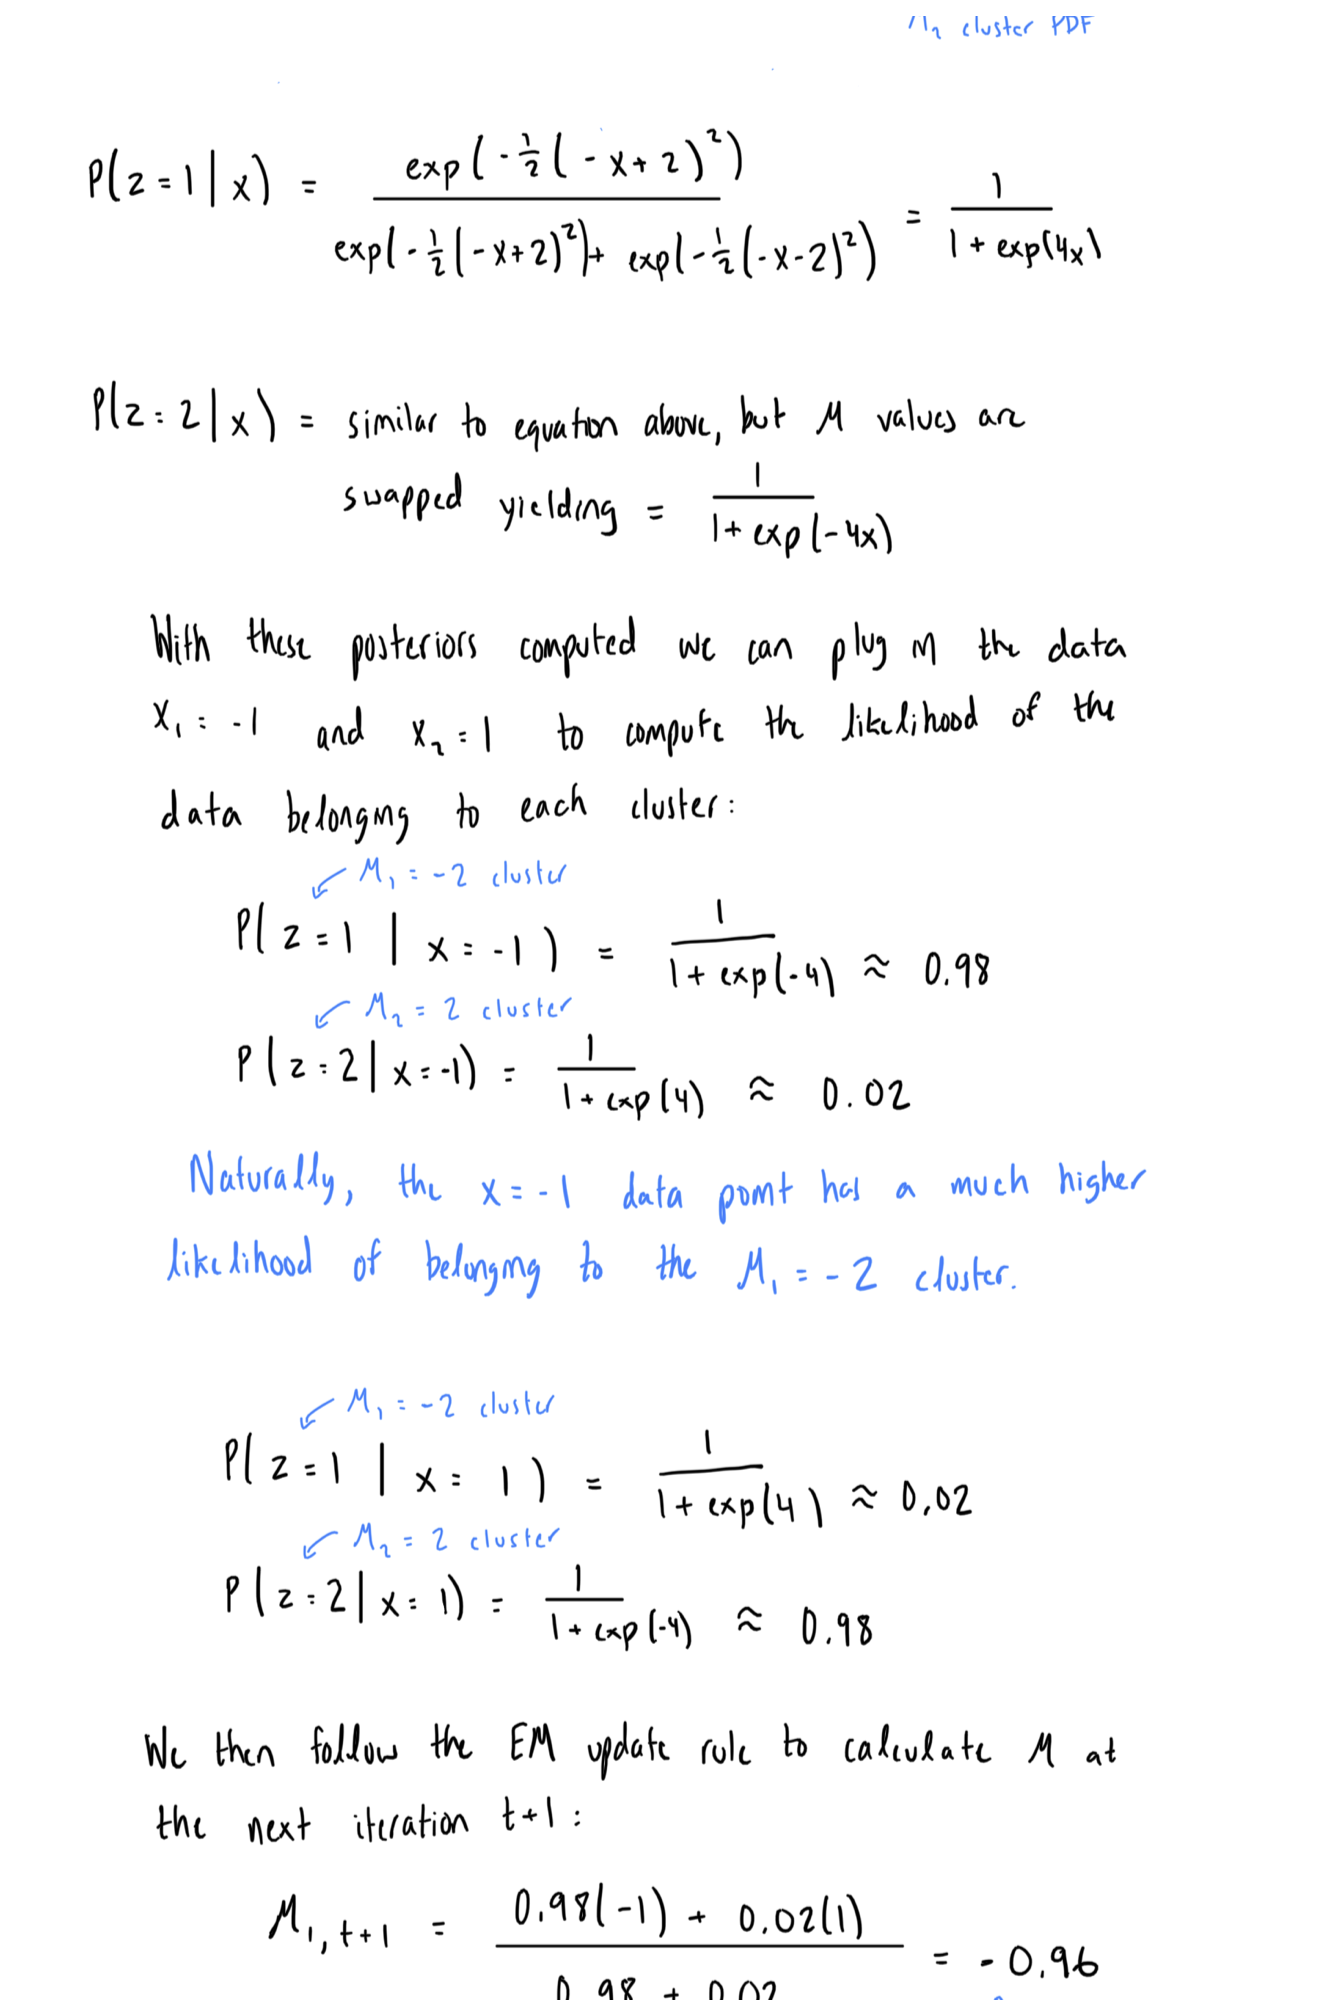 M₂ cluster PDF
P(z=1|x) = exp(-½(-x+2)²) / exp(-½(-x+2)²)+ exp(-½(-x-2)²) = 1 / 1 + exp(4x)
P(z=2|x) = similar to equation above, but M values are
swapped yielding = 1 / 1+ exp(-4x)
With these posteriors computed we can plug in the data
x₁ = -1 and x₂ = 1 to compute the likelihood of the
data belonging to each cluster:
M₁ = -2 cluster
P( z=1 | x = -1 ) = 1 / 1 + exp(-4) ≈ 0.98
M₂ = 2 cluster
P(z=2|x=-1) = 1 / 1+ exp(4) ≈ 0.02
Naturally, the x=-1 data point has a much higher
likelihood of belonging to the M₁ = -2 cluster.
M₁ = -2 cluster
P( z=1 | x = 1 ) = 1 / 1 + exp(4) ≈ 0.02
M₂ = 2 cluster
P(z=2|x=1) = 1 / 1+ exp(-4) ≈ 0.98
We then follow the EM update rule to calculate M at
the next iteration t+1:
M₁,t+1 = 0.98(-1) + 0.02(1) / 0.98 + 0.02 = -0.96